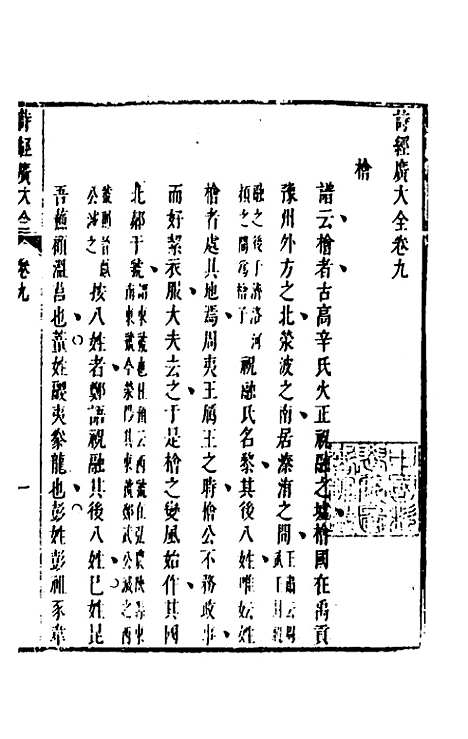 詩經廣大全卷九
檜
譜云檜者古高辛氏火正祝融之墟檜國在禹貢
豫州外方之北滎波之南居溱洧之間王肅云周武王封
融之後于濟洛河潁之間為檜子祝融氏名黎其後八姓唯妘姓
檜者處其地焉周夷王厲王之時檜公不務政事
而好絜衣服大夫去之于是檜之變風始作其國
北鄰于虢
公滅之按八姓者鄭語祝融其後八姓巳姓昆
吾蘇顧溫莒也董姓鬷夷豢龍也彭姓彭祖豕韋
詩經廣大全
卷九
一